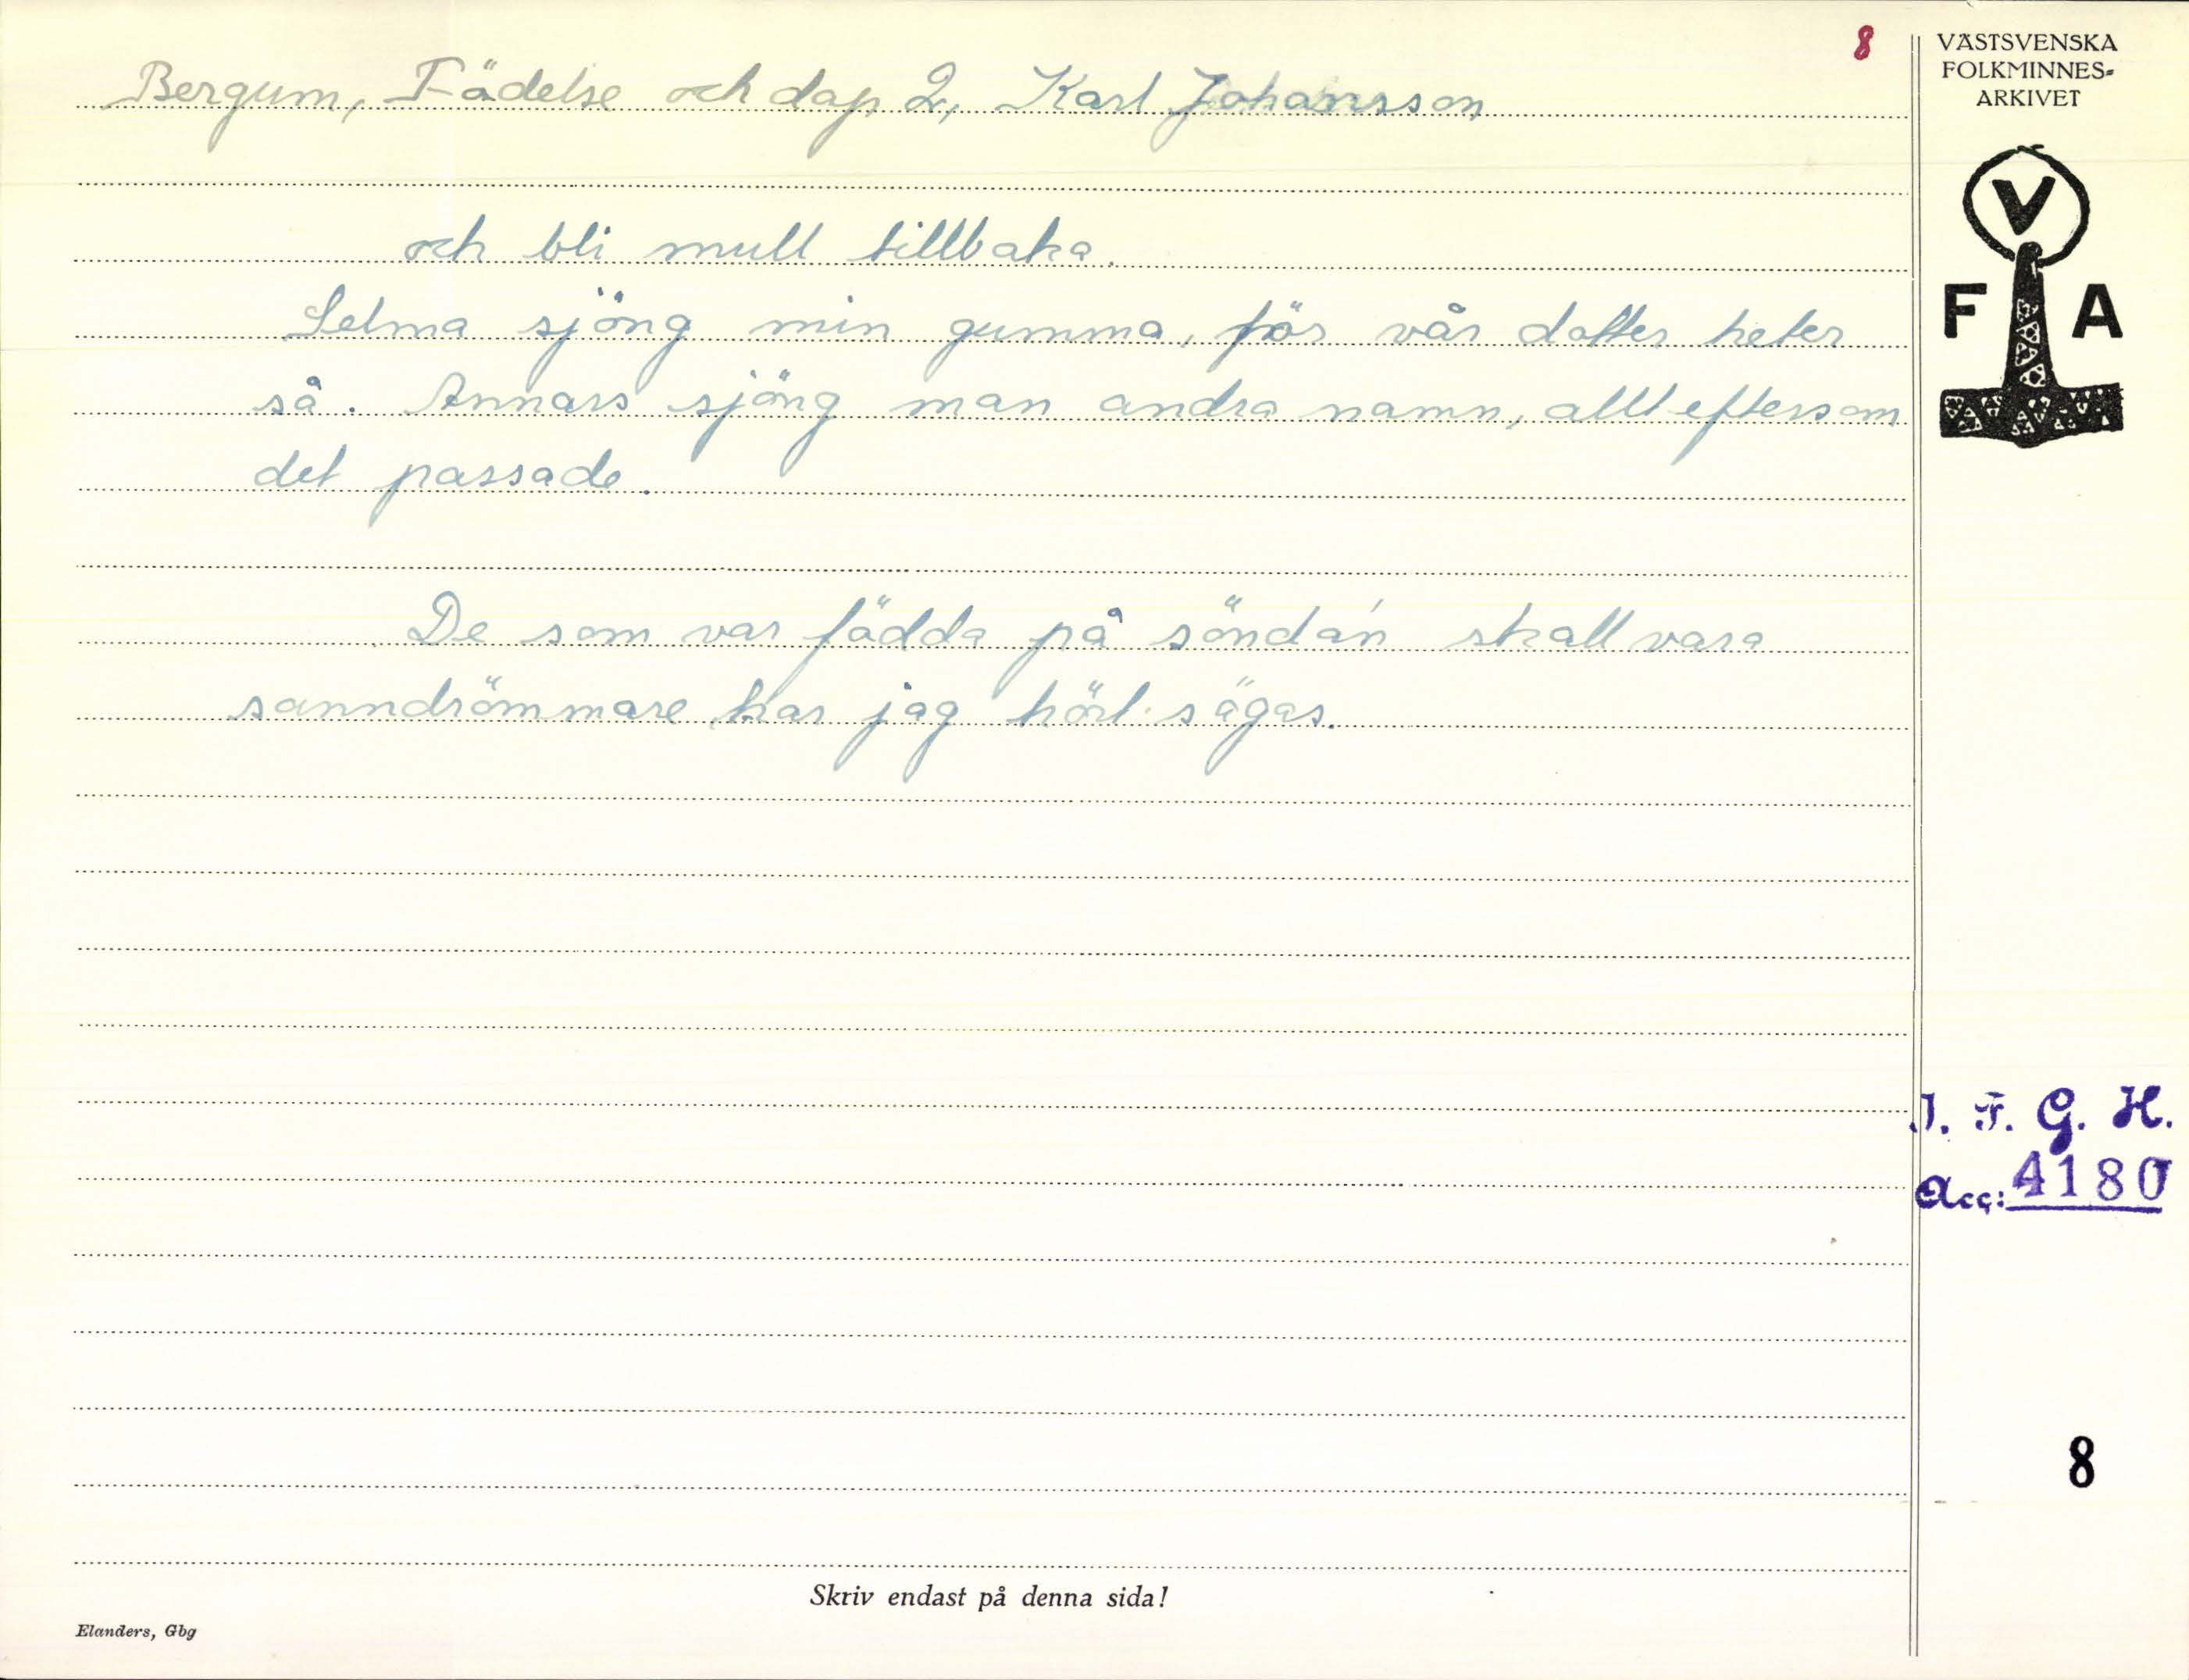 8
Bergum, Fädelse och dop 2, Karl Johansson
och bli mull tillbaka.
Selma sjöng min gumma, för vår dotter heter
så. Annars sjöng man andra namn, allt eftersom
det passade.
De som var födda på söndán skall vara
sanndrömmare har jag hört sägas.
VÄSTSVENSKA
FOLKMINNES-
ARKIVET
V
F A
I. F. G. H.
Acc: 4180
8
Skriv endast på denna sida!
Elanders, Gbg